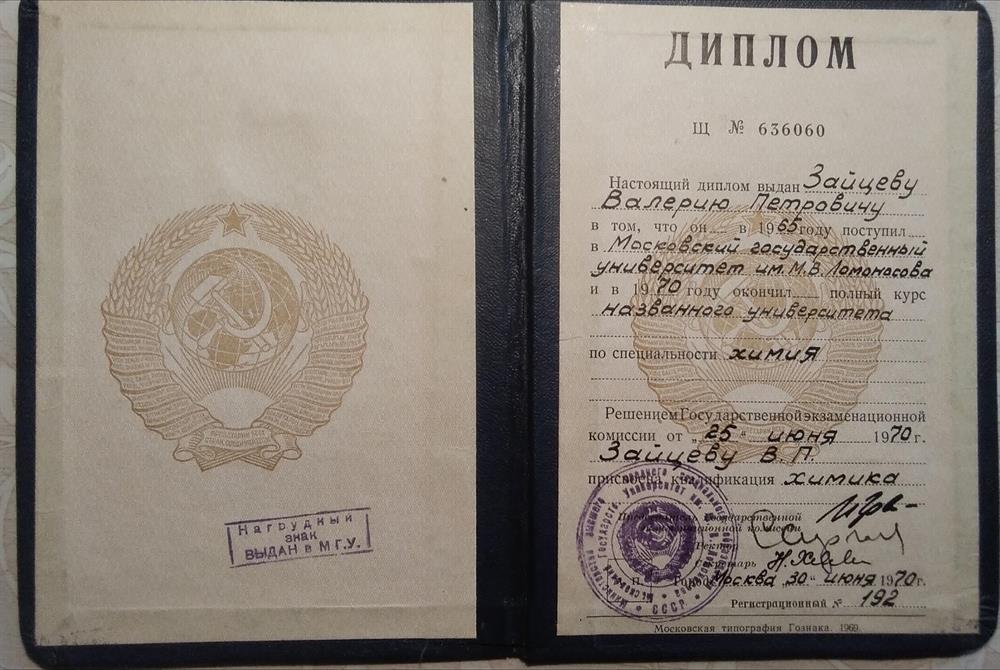 Нагрудный
знак
ВЫДАН в М Г.У.
ДИПЛОМ
Щ № 636060
Настоящий диплом выдан Зайцеву
Валерию Петровичу
в том, что он в 1965 году поступил
в Московский государственный
университет им. М.В. Ломоносова
и в 1970 году окончил полный курс
названного университета
по специальности химия
Решением Государственной экзаменационной
комиссии от „25“ июня 1970 г.
Зайцеву В. П.
присвоена квалификация химика
Председатель Государственной
экзаменационной комиссии
Ректор
Секретарь
Город Москва 30 “ июня 1970 г.
Регистрационный № 192
Московская типография Гознака. 1969.
СССР